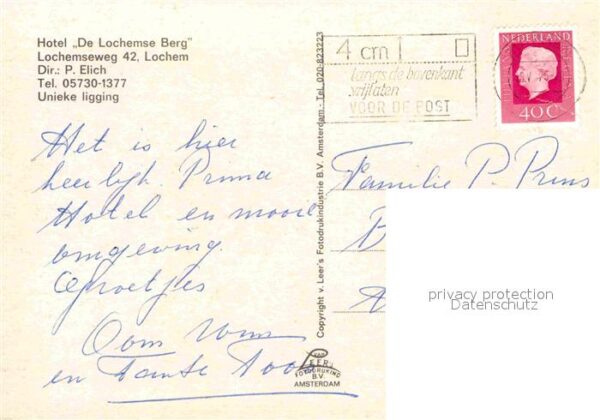 Hotel „De Lochemse Berg"
Lochemseweg 42, Lochem
Dir.: P. Elich
Tel. 05730-1377
Unieke ligging
Het is hier
heerlijk. Prima
Hotel en mooie
omgeving.
Groetjes
Oom Wim
en Tante Toos
Copyright v. Leer's Fotodrukindustrie B.V. Amsterdam - Tel. 020-823223
VAN
LEER
FOTODRUKIND
B.V.
AMSTERDAM
4 cm
langs de bovenkant
vrijlaten
VOOR DE POST
NEDERLAND
40 C
Familie P. Prins
privacy protection
Datenschutz